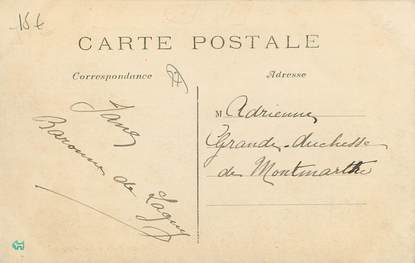 15€
CARTE POSTALE
Correspondance
Adresse
Jane
Baronne de Lagny
M Adrienne
Grande-duchesse
de Montmarthe